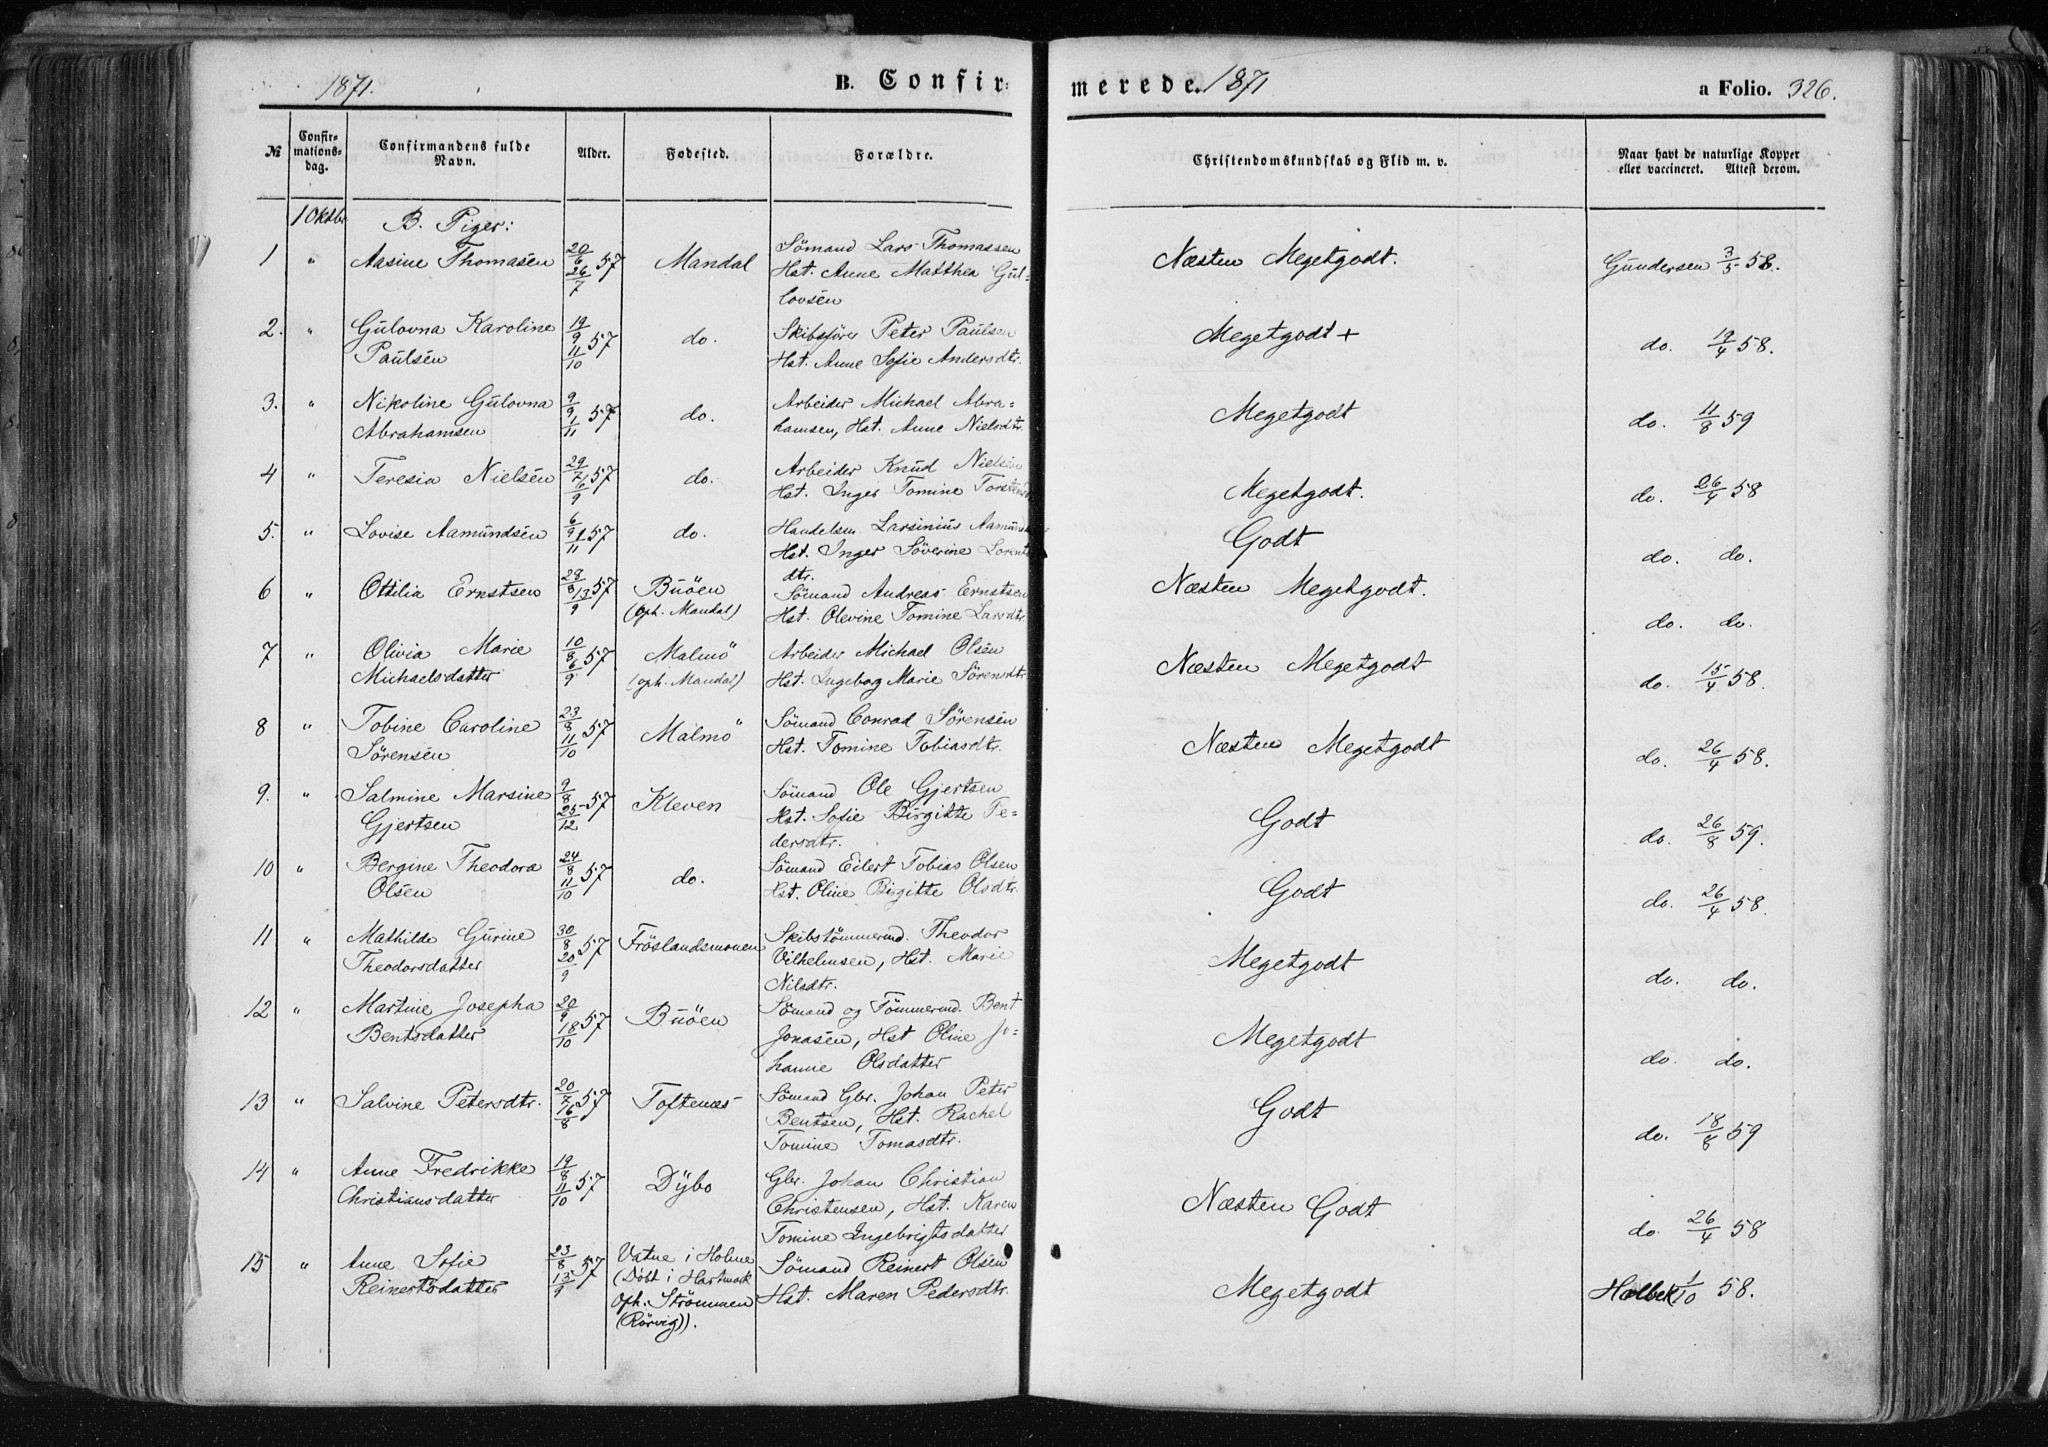 1871. B. Confirmerede. 1871 a Folio. 326.
№ Confirmationsdag. Confirmandens fulde Navn. Alder. Fødested. Forældre. Christendomskundskab og Flid m. v. Naar havt de naturlige Kopper eller vaccineret. Attest derom.
1 Oktbr B. Piger:
1 " Aasine Thomasén 20/6 57 26/7 Mandal Sömand Lars Thomassen Næsten Megetgodt. Gundersen 3/5 58.
Hst. Anne Matthea Gul-
lovsén
2. " Gülovna Karoline 19/9 57 11/10 do. Skibsförer Peter Paulsen Megetgodt + do. 19/4 58.
Paulsén Hst. Anne Sofie Andersdtr.
3. " Nikoline Gülovna 9/9 57 1/11 do. Arbeider Michael Abra- Megetgodt do. 11/8 59
Abrahamsen hamsen, Hst. Anne Nielsdtr.
4 " Teresia Nielsén 29/7 57 6/9 do. Arbeider Knud Nielsén Megetgodt. do. 26/4 58
Hst. Inger Tomine
5. " Lovise Aamundsén 6/9 57 1/11 do. Handelsm Larsinius Godt do. do.
Hst. Inger Söverine
dtr.
6 " Ottilia Ernstsen 29/8 57 13/9 Buöen Sömand Andreas Ernstsen Næsten Megetgodt. do. do.
(Oph. Mandal) Hst. Olevine Tomine Larsdtr.
7 " Olivia Marie 10/8 57 6/9 Malmö Arbeider Michael Olsén Næsten Megetgodt do. 15/4 58.
Michaelsdatter (oph. Mandal) Hst. Ingebog Marie Sörensdtr
8 " Tobine Caroline 23/8 57 11/10 Malmö Sömand Conrad Sörensén Næsten Megetgodt do. 26/4 58.
Sörensén Hst. Tomine Tobiasdtr.
9. " Salmine Marsine 9/8 57 25/12 Kleven Sömand Ole Gjertsen Godt do. 26/8 59.
Gjertsen Hst. Sofie Birgitte Pe-
dersdtr.
10 " Bergine Theodora 24/8 57 11/10 do. Sömand Eilert Tobias Olsen Godt do. 26/4 58.
Olsén Hst. Oline Birgitte Olsdtr.
11 " Mathilde Gurine 30/8 57 20/9 Fröslandsmonen Skibstömmermd. Theodor Megetgodt do. do.
Theodorsdatter Vilhelmsen, Hst. Marie
Nilsdtr.
12 " Martine Josepha 20/9 57 18/10 Buöen Sömand og Tömmermd. Bent Megetgodt do. do.
Bentsdatter Jonasén, Hst Oline Jo-
hanne Olsdatter
13 " Salvine Petersdtr. 20/7 57 16/8 Toftenæs Sömand Gbr. Johan Peter Godt do. 18/8 59
Bentsen, Hst. Rachel
Tomine Tomasdtr.
14 " Anne Fredrikke 19/8 57 11/10 Dÿbo Gbr. Johan Christian Næsten Godt do. 26/4 58
Christiansdatter Christensen, Hst. Karen
Tomine Ingebrigtsdatter
15 " Anne Sofie 23/8 57 13/9 Vatne i Holme Sömand Reinert Olsén Megetgodt Holbek 1/10 58.
Reinertsdatter (Döbt i Hartmark Hst. Maren Pedersdtr.
Oph. Strömmen
(Rörvig)).